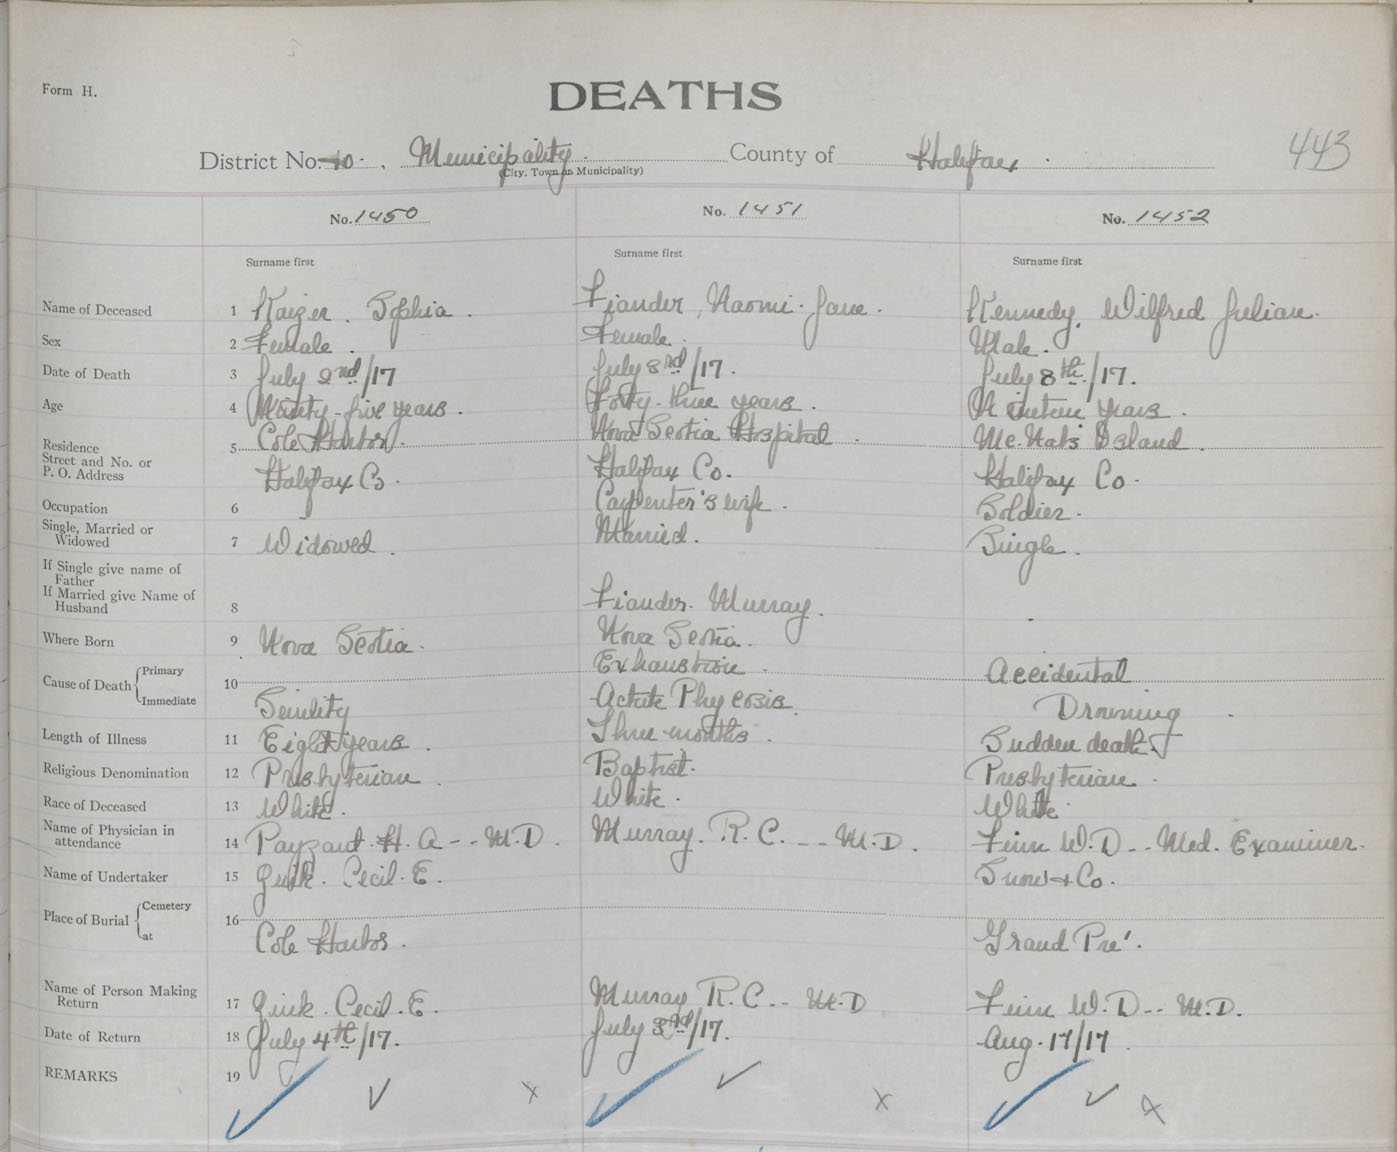 Form H.
DEATHS
443
District No. 10. Municipality. County of Halifax.
(City, Town or Municipality)
No. 1450
No. 1451
No. 1452
Surname first
Surname first
Surname first
Name of Deceased 1 Kaizer. Sophia. Fiander, Naomi. Jane. Kennedy, Wilfred Julian.
Sex 2 Female. Female. Male.
Date of Death 3 July 2nd/17 July 3rd/17. July 8th/17.
Age 4 Ninety-five years. Forty-three years. Nineteen years.
Residence 5 Cole Harbor. Nova Scotia Hospital. Mc.Nabs Island.
Street and No. or
P. O. Address Halifax Co. Halifax Co. Halifax Co.
Occupation 6 Carpenter's wife. Soldier.
Single, Married or
Widowed 7 Widowed. Married. Single.
If Single give name of
Father
If Married give Name of
Husband 8 Fiander. Murray.
Where Born 9 Nova Scotia. Nova Scotia.
Cause of Death Primary 10 Exhaustion. Accidental
Immediate Senility Actute Phycosis. Drowning.
Length of Illness 11 Eight years. Three months. Sudden death.
Religious Denomination 12 Presbyterian. Baptist. Presbyterian.
Race of Deceased 13 White. White. White.
Name of Physician in
attendance 14 Payzant. H. A -- M.D. Murray. R. C. -- M.D. Finn W. D -- Med. Examiner.
Name of Undertaker 15 Cecil. E. Snow & Co.
Place of Burial Cemetery 16
at Cole Harbor. Grand Pre'.
Name of Person Making
Return 17 Cecil. E. Murray R. C. -- M.D Finn W. D -- M.D.
Date of Return 18 July 4th/17. July 3rd/17. Aug. 17/17.
REMARKS 19